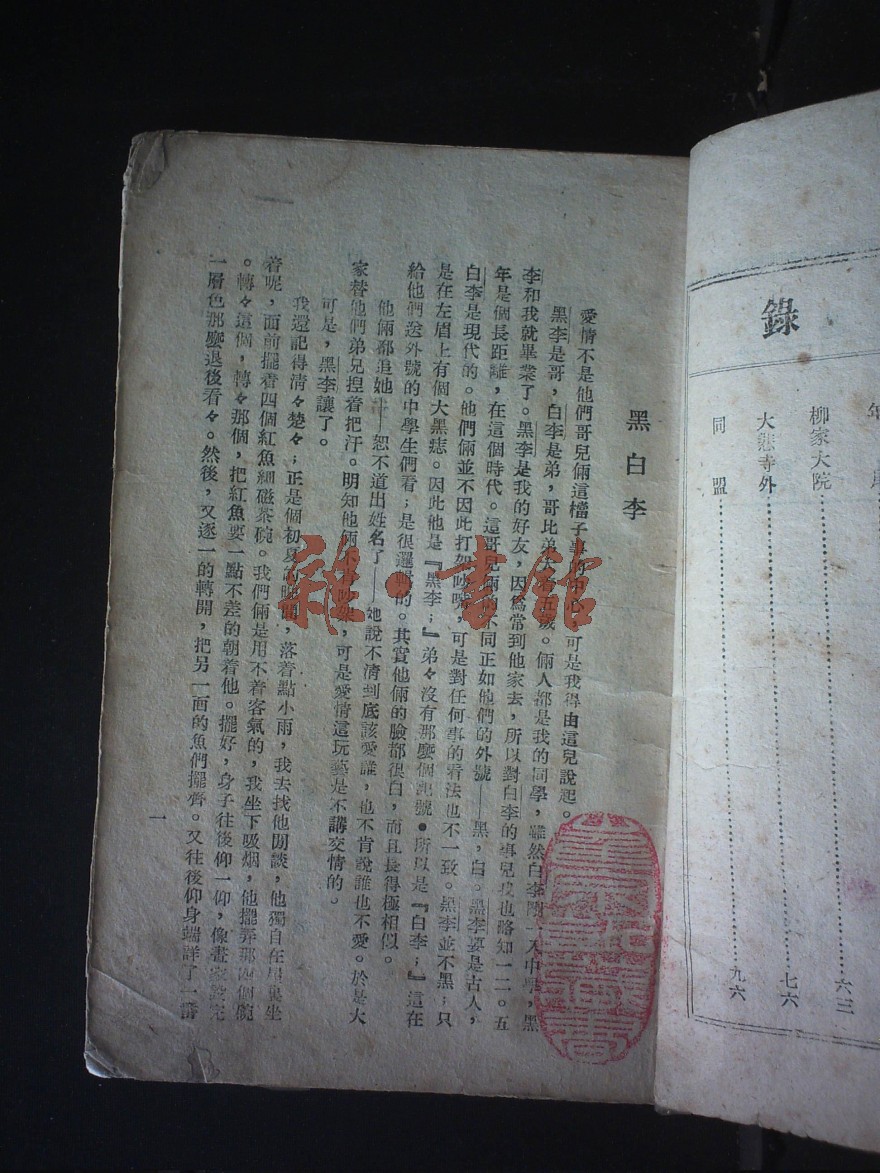 錄
年
柳家大院⋯⋯⋯⋯六三
大悲寺外⋯⋯⋯⋯七六
同盟⋯⋯⋯⋯九六
黑白李
愛情不是他們哥兒倆這檔子事的中心，可是我得由這兒說起。
黑李是哥，白李是弟，哥比弟大五歲。倆人都是我的同學，雖然白李一入中學，黑
李和我就畢業了。黑李是我的好友，因爲常到他家去，所以對白李的事兒我也略知一二。五
年是個長距離，在這個時代。這哥兒倆的不同正如他們的外號——黑，白。黑李要是古人，
白李是現代的。他們倆並不因此打架吵嘴，可是對任何事的看法也不一致。黑李並不黑；只
是在左眉上有個大黑痣。因此他是『黑李；』弟々沒有那麼個記號。所以是『白李；』這在
給他們送外號的中學生們看；是很邏輯的。其實他倆的臉都很白，而且長得極相似。
他倆都追她——恕不道出姓名了——她說不清到底該愛誰，也不肯說誰也不愛。於是大
家替他們弟兄揑着把汗。明知他倆不吵架，可是愛情這玩藝是不講交情的。
可是，黑李讓了。
我還記得清々楚々；正是個初夏的晚間，落着點小雨，我去找他閒談，他獨自在屋裏坐
着呢，面前擺着四個紅魚細磁茶碗。我們倆是用不着客氣的，我坐下吸烟，他擺弄那四個碗
。轉々這個，轉々那個，把紅魚要一點不差的朝着他。擺好，身子往後仰一仰，像畫家設完
一層色那麼退後看々。然後，又逐一的轉開，把另一面的魚們擺齊。又往後仰身端詳了一番
一
雜·書館